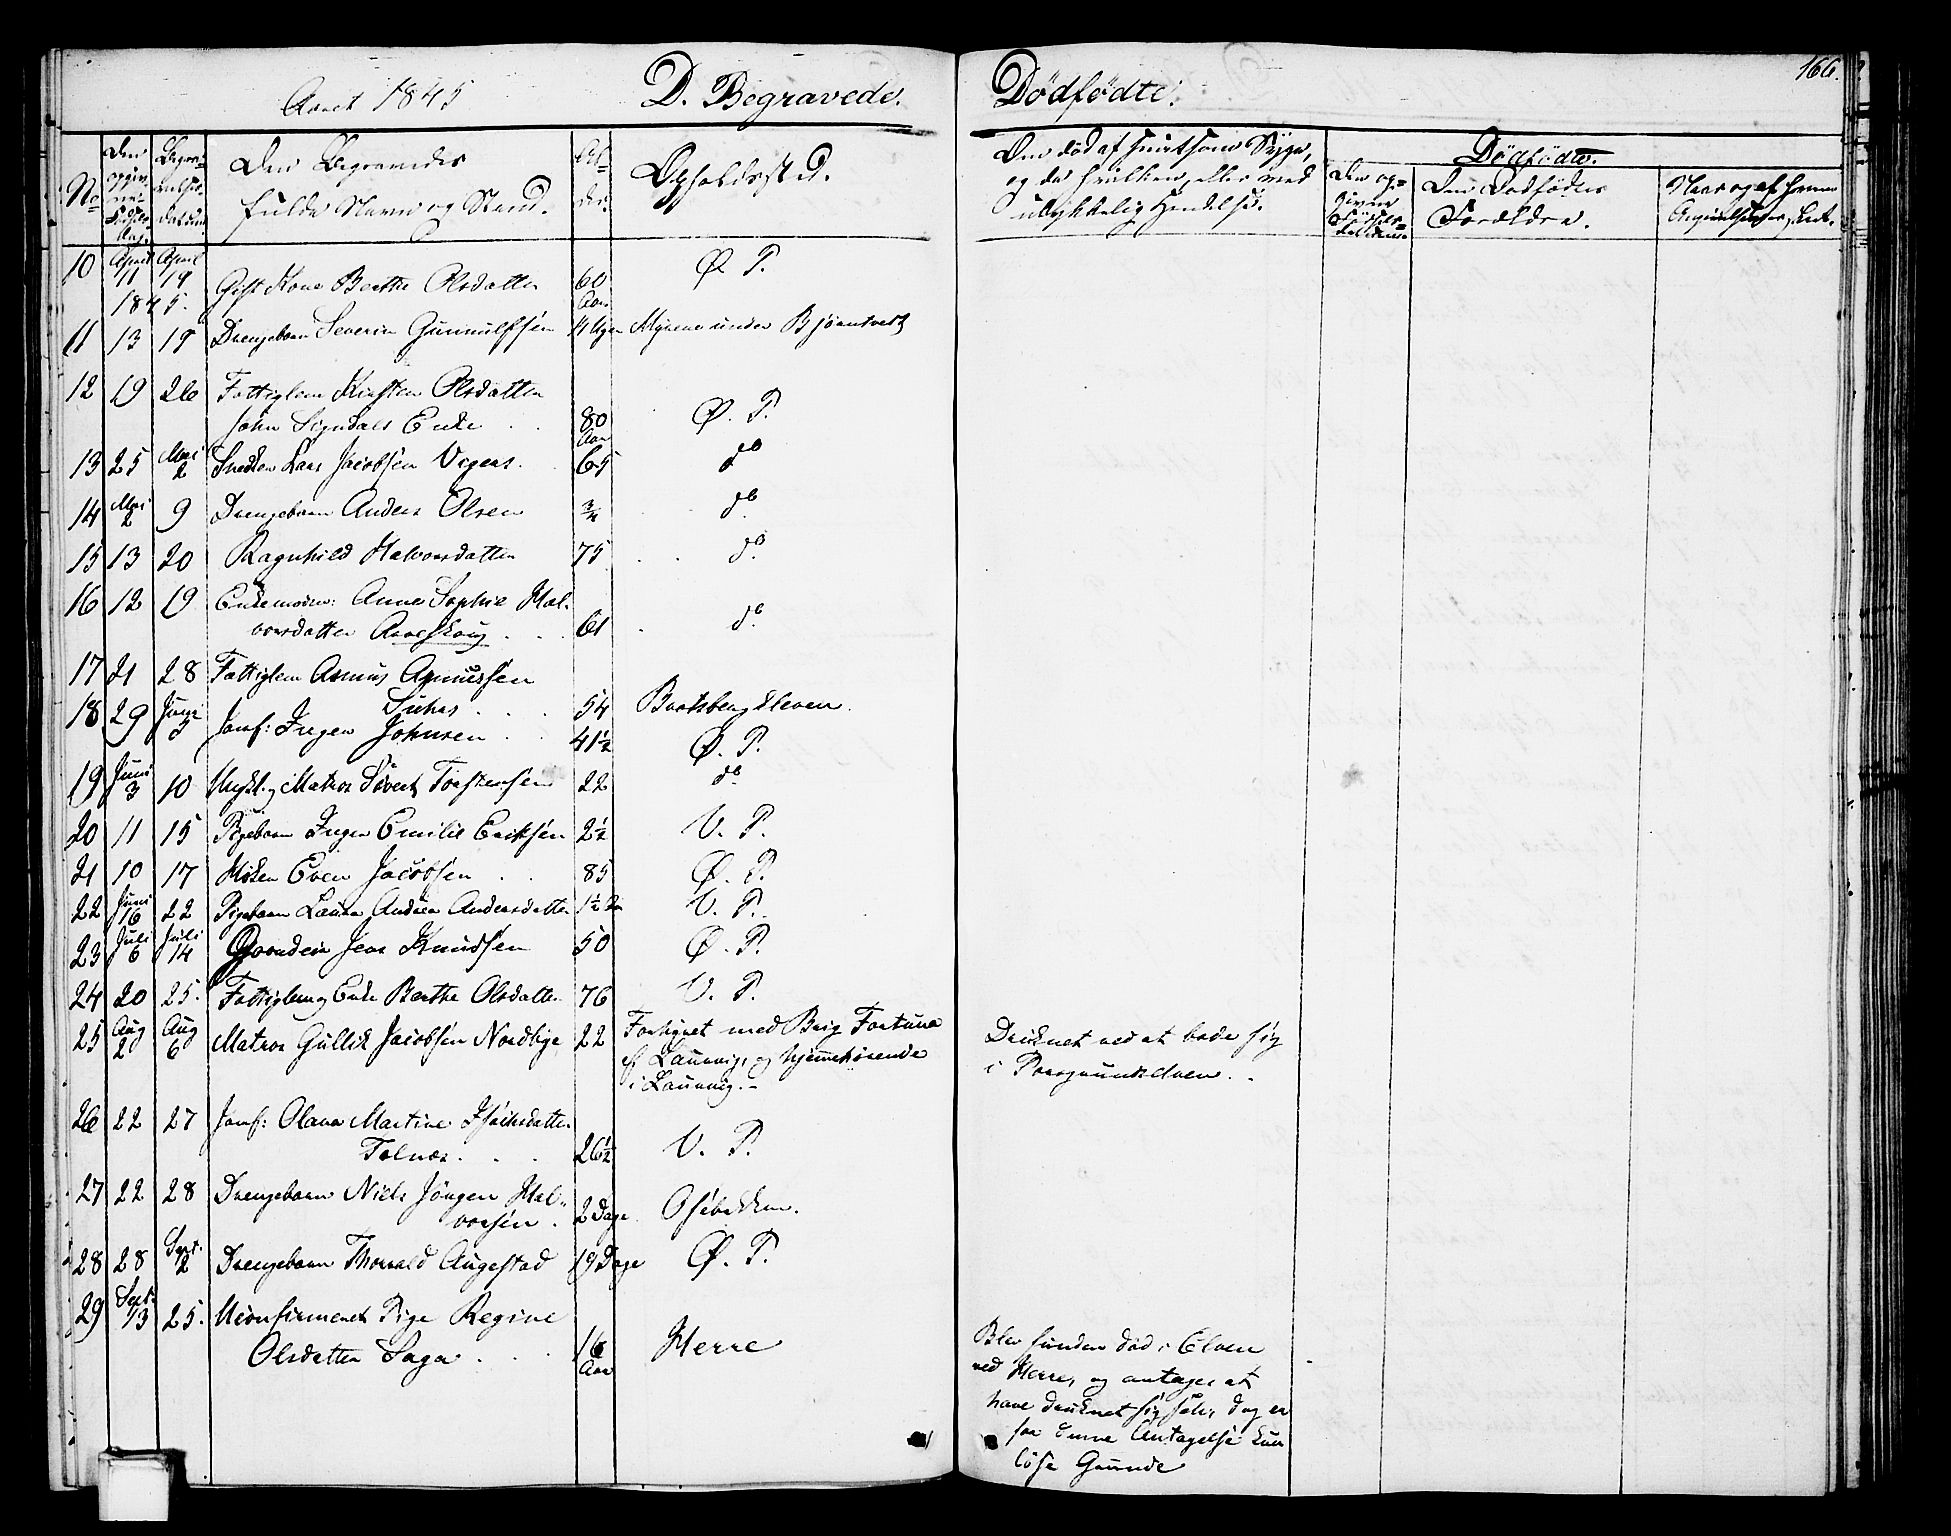 Aaret 1845
D. Begravede.
Dødfødte.
166.
No
Den opgivne Dødsdag.
Begravelsesdatum
Den Begravedes
fulde Navn og Stand.
Alder.
Opholdssted.
Om død af smitsom Syge,
og da hvilken, eller ved
ulykkelig Hendelse.
Dødfødte.
Den opgivne Fødsels
Den Dødfødtes
Forældre.
10 April 11 April 19 Gift Kone Berthe Olsdatter 60 Aar Ø. P.
1845.
11 13 19 Drengebarn Severin Gunnulfsen 14 Uger Myrene under Bjørntvedt
12 19 26 Fattiglem Kirsten Olsdatter
John Signdals Enke 80 Aar Ø. P.
13 25 Mai 2 Snedker Lars Jacobsen Vegers 65 do
14 Mai 2 9 Drengebarn Anders Olsen 3/4 do
15 13 20 Ragnhild Halvorsdatter 75 do
16 12 19 Enkemadm: Anne Sophie Hal-
vorsdatter Aaeskoug 61 do
17 21 28 Fattiglem Asmus Asmussen
54 Bratsbergkleven
18 29 Juni 5 Jomf: Inger Johnsen 41½ Ø. P.
19 Juni 3 10 Ungk. og Matros Sivert Torstensen 22 do
20 11 15 Pigebarn Inger Emilie Eriksen 2½ V. P.
21 10 17 Even Jacobsen 85 Ø. P.
22 Juni 16 22 Pigebarn Laura Andrea Andersdatter 1½ Aar V. P.
23 Juli 6 Juli 14 Jens Knudsen 50 Ø. P.
24 20 25. Fattiglem og Enke Berthe Olsdatter 76 V. P.
25 Aug 2 Aug 6 Matros Gullik Jacobsen Nordbye 22 Forhyret med Brig Fortuna
af Laurvig, og hjemmehørende
i Laurvig.-
Druknet ved at bade sig
i Porsgrundselven.
26 22 27 Jomf: Olava Martine Isaksdatter
Tolnæs 26½ V. P.
27 22 28 Drengebarn Niels Jörgen Hal-
vorsen 2 Dage Osebakken.
28 28 Sept. 2 Drengebarn Thorvald Augestad 19 Dage Ø. P.
29 Sept. 13 25. Uconfirmeret Pige Regine
Olsdatter Saga 16 Aar Herre
Blev funden død i Elven
ved Herre, og antages at
have druknet sig selv, dog er
for denne Antagelse kun
løse Grunde